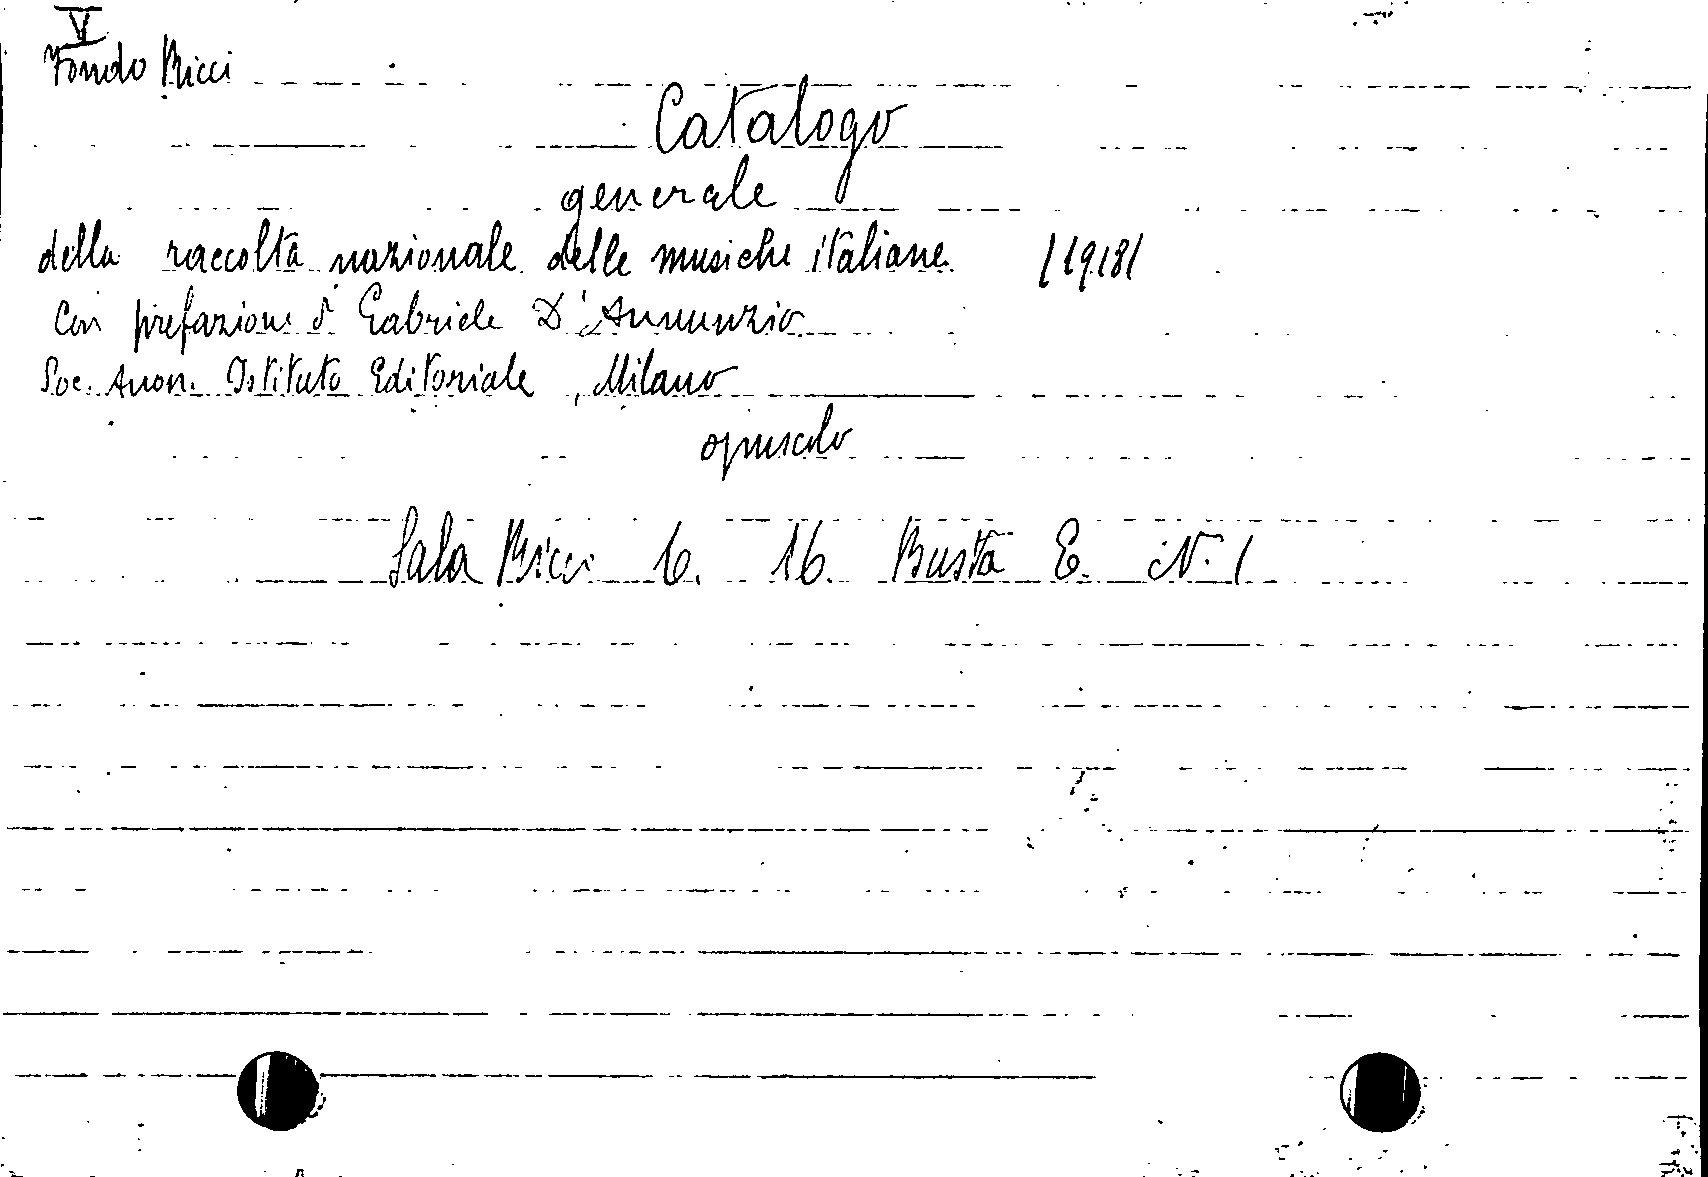 V
Fondo Ricci
Catalogo
generale
della raccolta nazionale delle musiche italiane /1918/
con prefazione di Gabriele D'Annunzio
Soc. Anon. Istituto Editoriale, Milano
opuscolo
Sala Ricci C. 16. Busta E. N. 1